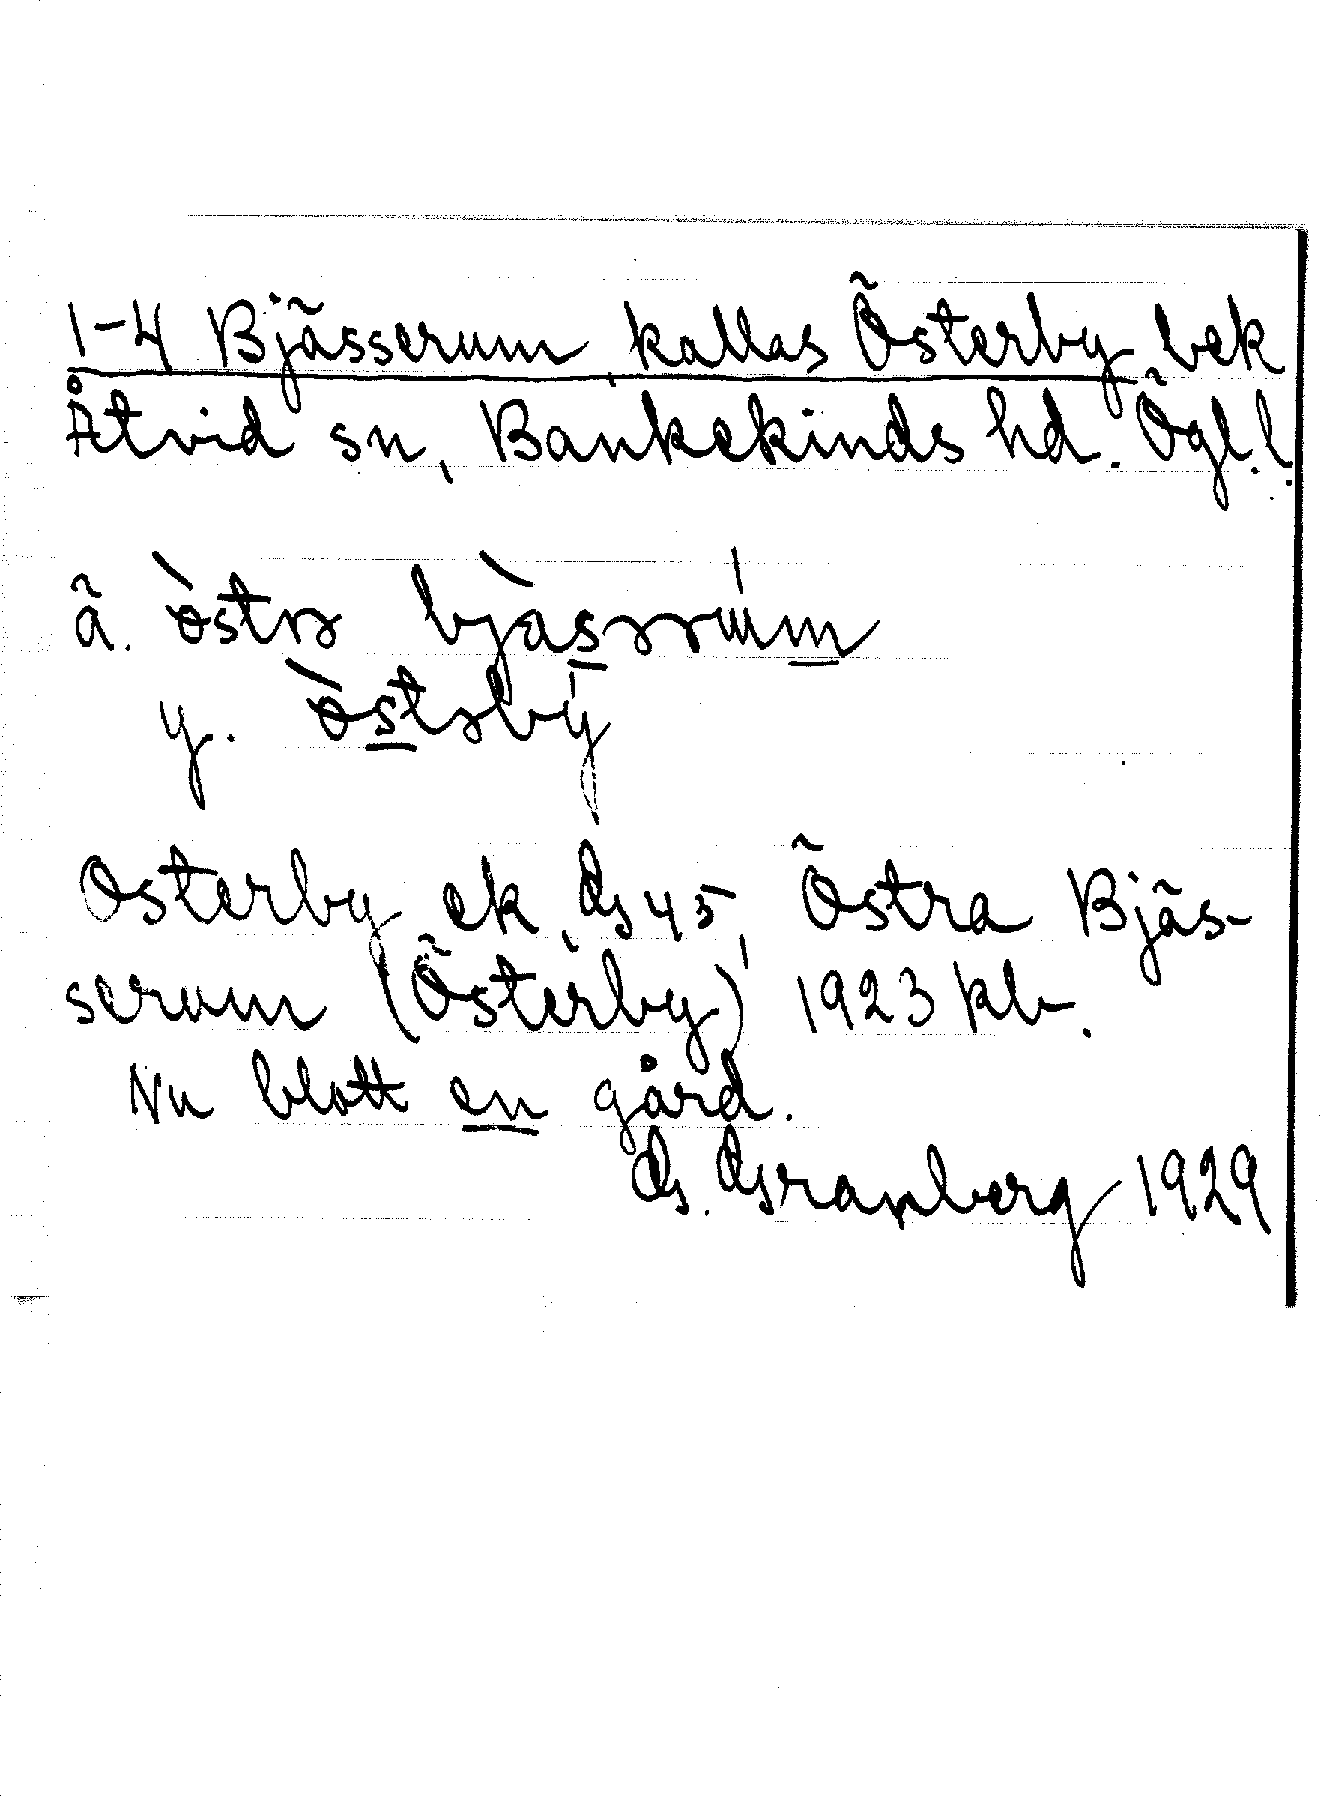 1-4 Bjässerum, kallas Österby bek
Åtvid sn, Bankekinds hd. Ögl.l.
ä.
y.
Österby ek, Gs 45, Östra Bjäs-
serum (Österby) 1923 kb.
Nu blott en gård.
G. Granberg 1929